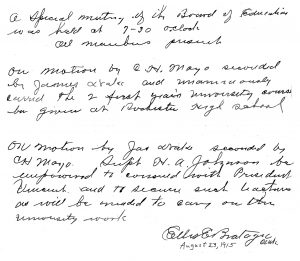 A Special meeting of the Board of Education
was held at 7-30 oclock
All members present
On motion by C H. Mayo seconded
by James and unanimously
carried the 2 first years university course
be given at Rochester High School
On motion by Jas seconded by
C H Mayo Supt H. A. Johnson be
empowered to consult with President
Vincent and to secure such teachers
as will be needed to carry on the
university work
August 23, 1915 Clerk